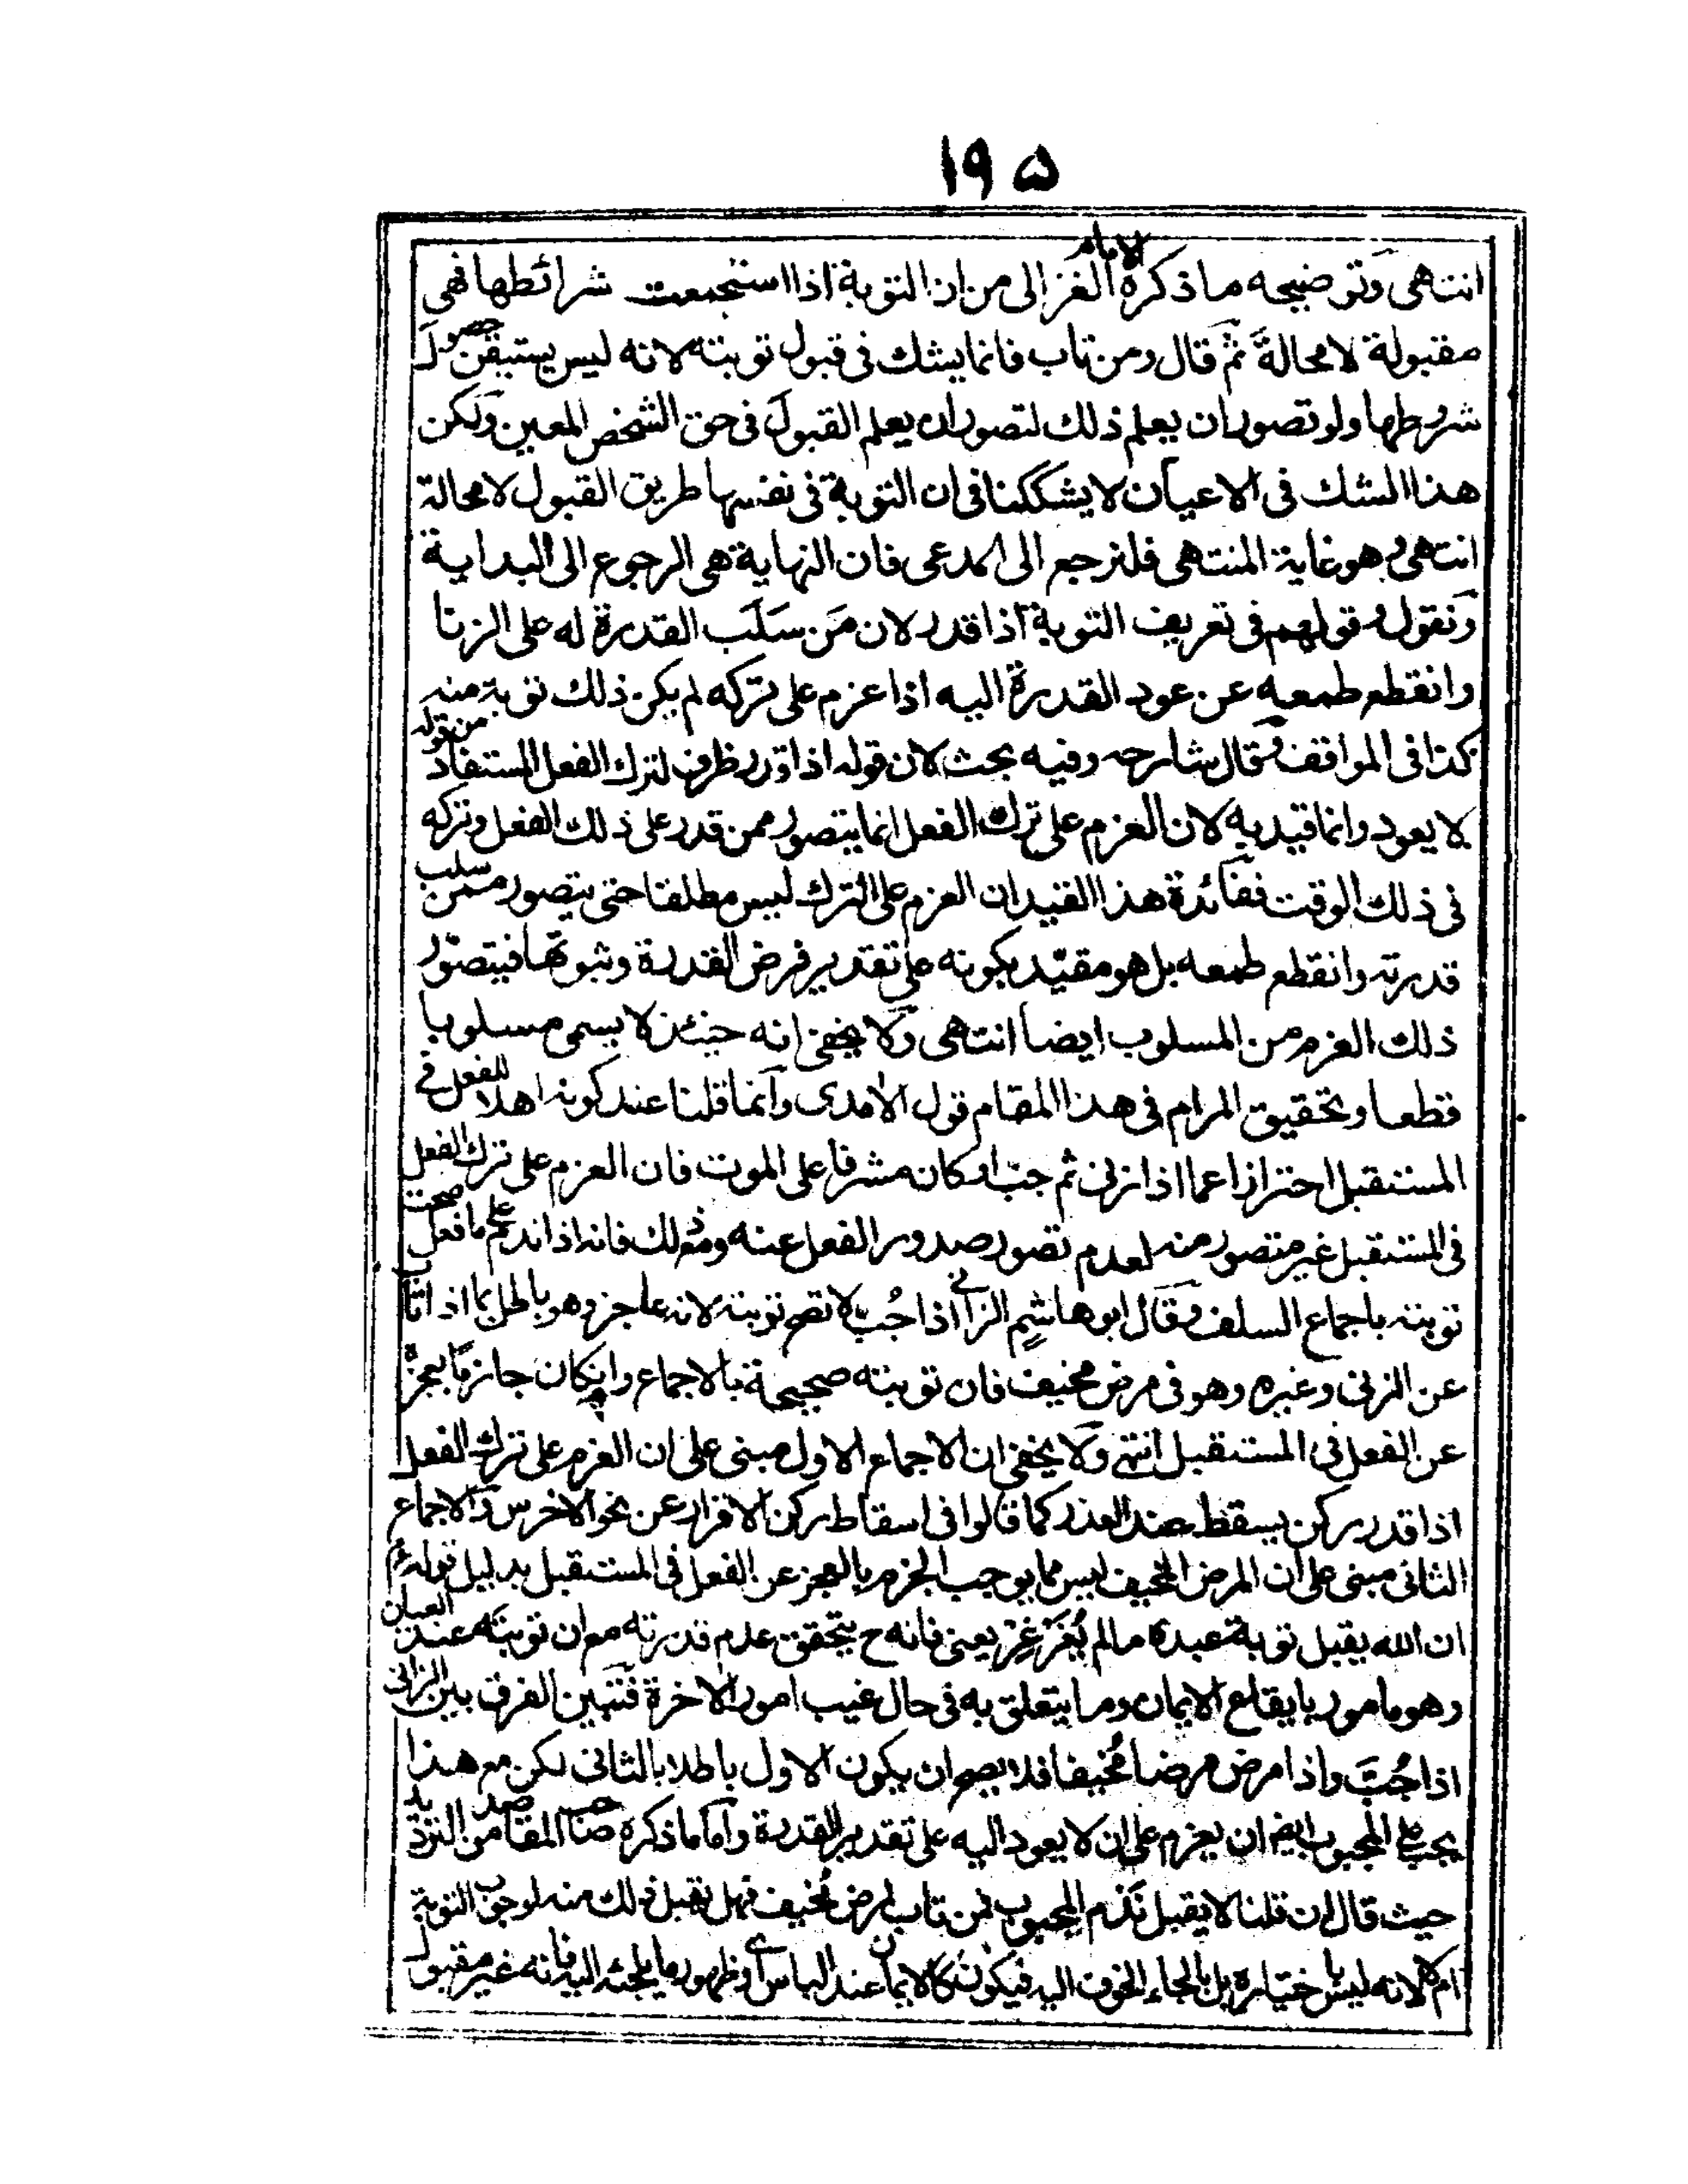 ۱۹۵
انتهى وتوضيحه ما ذكره الامام الغزالى من ان التوبة اذا استجمعت شرائطها فهى
مقبولة لا محالة ثم قال ومن تاب فانما يشك فى قبول توبته لانه ليس يستيقن حصول
شروطها ولو تصور ان يعلم ذلك لتصور ان يعلم القبول فى حق الشخص المعين ولكن
هذا الشك فى الاعيان لا يشككنا فى ان التوبة فى نفسها طريق القبول لا محالة
انتهى وهو غاية المنتهى فلنرجع الى المدعى فان النهاية هى الرجوع الى البداية
ونقول وقولهم فى تعريف التوبة اذا قدر لان من سلب القدرة له على الزنا
وانقطع طمعه عن عود القدرة اليه اذا عزم على تركه لم يكن ذلك توبة منه
كذا فى المواقف وقال شارحه وفيه بحث لان قوله اذا قدر ظرف لترك الفعل المستفاد من قوله
لا يعود وانما قيد به لان العزم على ترك الفعل انما يتصور ممن قدر على ذلك الفعل وتركه
فى ذلك الوقت ففائدة هذا القيد ان العزم على الترك ليس مطلقا حتى يتصور ممن سلب
قدرته وانقطع طمعه بل هو مقيّد بكونه على تقدير فرض القدرة وثبوتها فيتصوّر
ذلك العزم من المسلوب ايضا انتهى ولا يخفى انه حينئذ لا يسمى مسلوبا
قطعا وتحقيق المرام فى هذا المقام قول الامدى وانما قلنا عند كونه اهلا للفعل فى
المستقبل احترازا عما اذا زنى ثم جب او كان مشرفا على الموت فان العزم على ترك الفعل
فى المستقبل غير متصور منه لعدم تصور صدور الفعل عنه ومع ذلك فانه اذا ندم على ما فعل صحت
توبته باجماع السلف وقال ابو هاشم الزانى اذا جُبّ لا تصح توبته لانه عاجز وهو باطل بما اذا تاب
عن الزنى وغيره وهو فى مرض مخيف فان توبته صحيحة بالاجماع وان كان جازما بعجزه
عن الفعل فى المستقبل انتهى ولا يخفى ان الاجماع الاول مبنى على ان العزم على ترك الفعل
اذا قدر ركن يسقط عند العذر كما قالوا فى اسقاط ركن الاقرار عن نحو الاخرس والاجماع
الثانى مبنى على ان المرض المخيف ليس مما يوجب الجزم بالعجز عن الفعل فى المستقبل بدليل قوله ؑم
ان الله يقبل توبة عبده ما لم يُغَرْغِرْ يعنى فانه ح يتحقق عدم قدرته مع ان توبته عند العيان
وهو مامور بايقاع الايمان وما يتعلق به فى حال غيب امور الاخرة فتبين الفرق بين الزانى
اذا جُبَّ واذا مرض مرضا مُخيفا فلا يصح ان يكون الاول باطلا بالثانى لكن مع هذا
يجب على المجبوب ايضا ان يعزم على ان لا يعود اليه على تقدير القدرة واما ما ذكره صاحب المقاصد من الترديد
حيث قال ان قلنا لا يقبل نَدَم المجبوب فمن تاب لمرض مُخيف فهل نقبل ذلك منه لوجوب التوبة
ام لا لانه ليس باختياره بل بالجاء الخوف اليه فيكون كالايمان عند الياس اى وظهور ما يلجئه اليه فانه غير مقبول